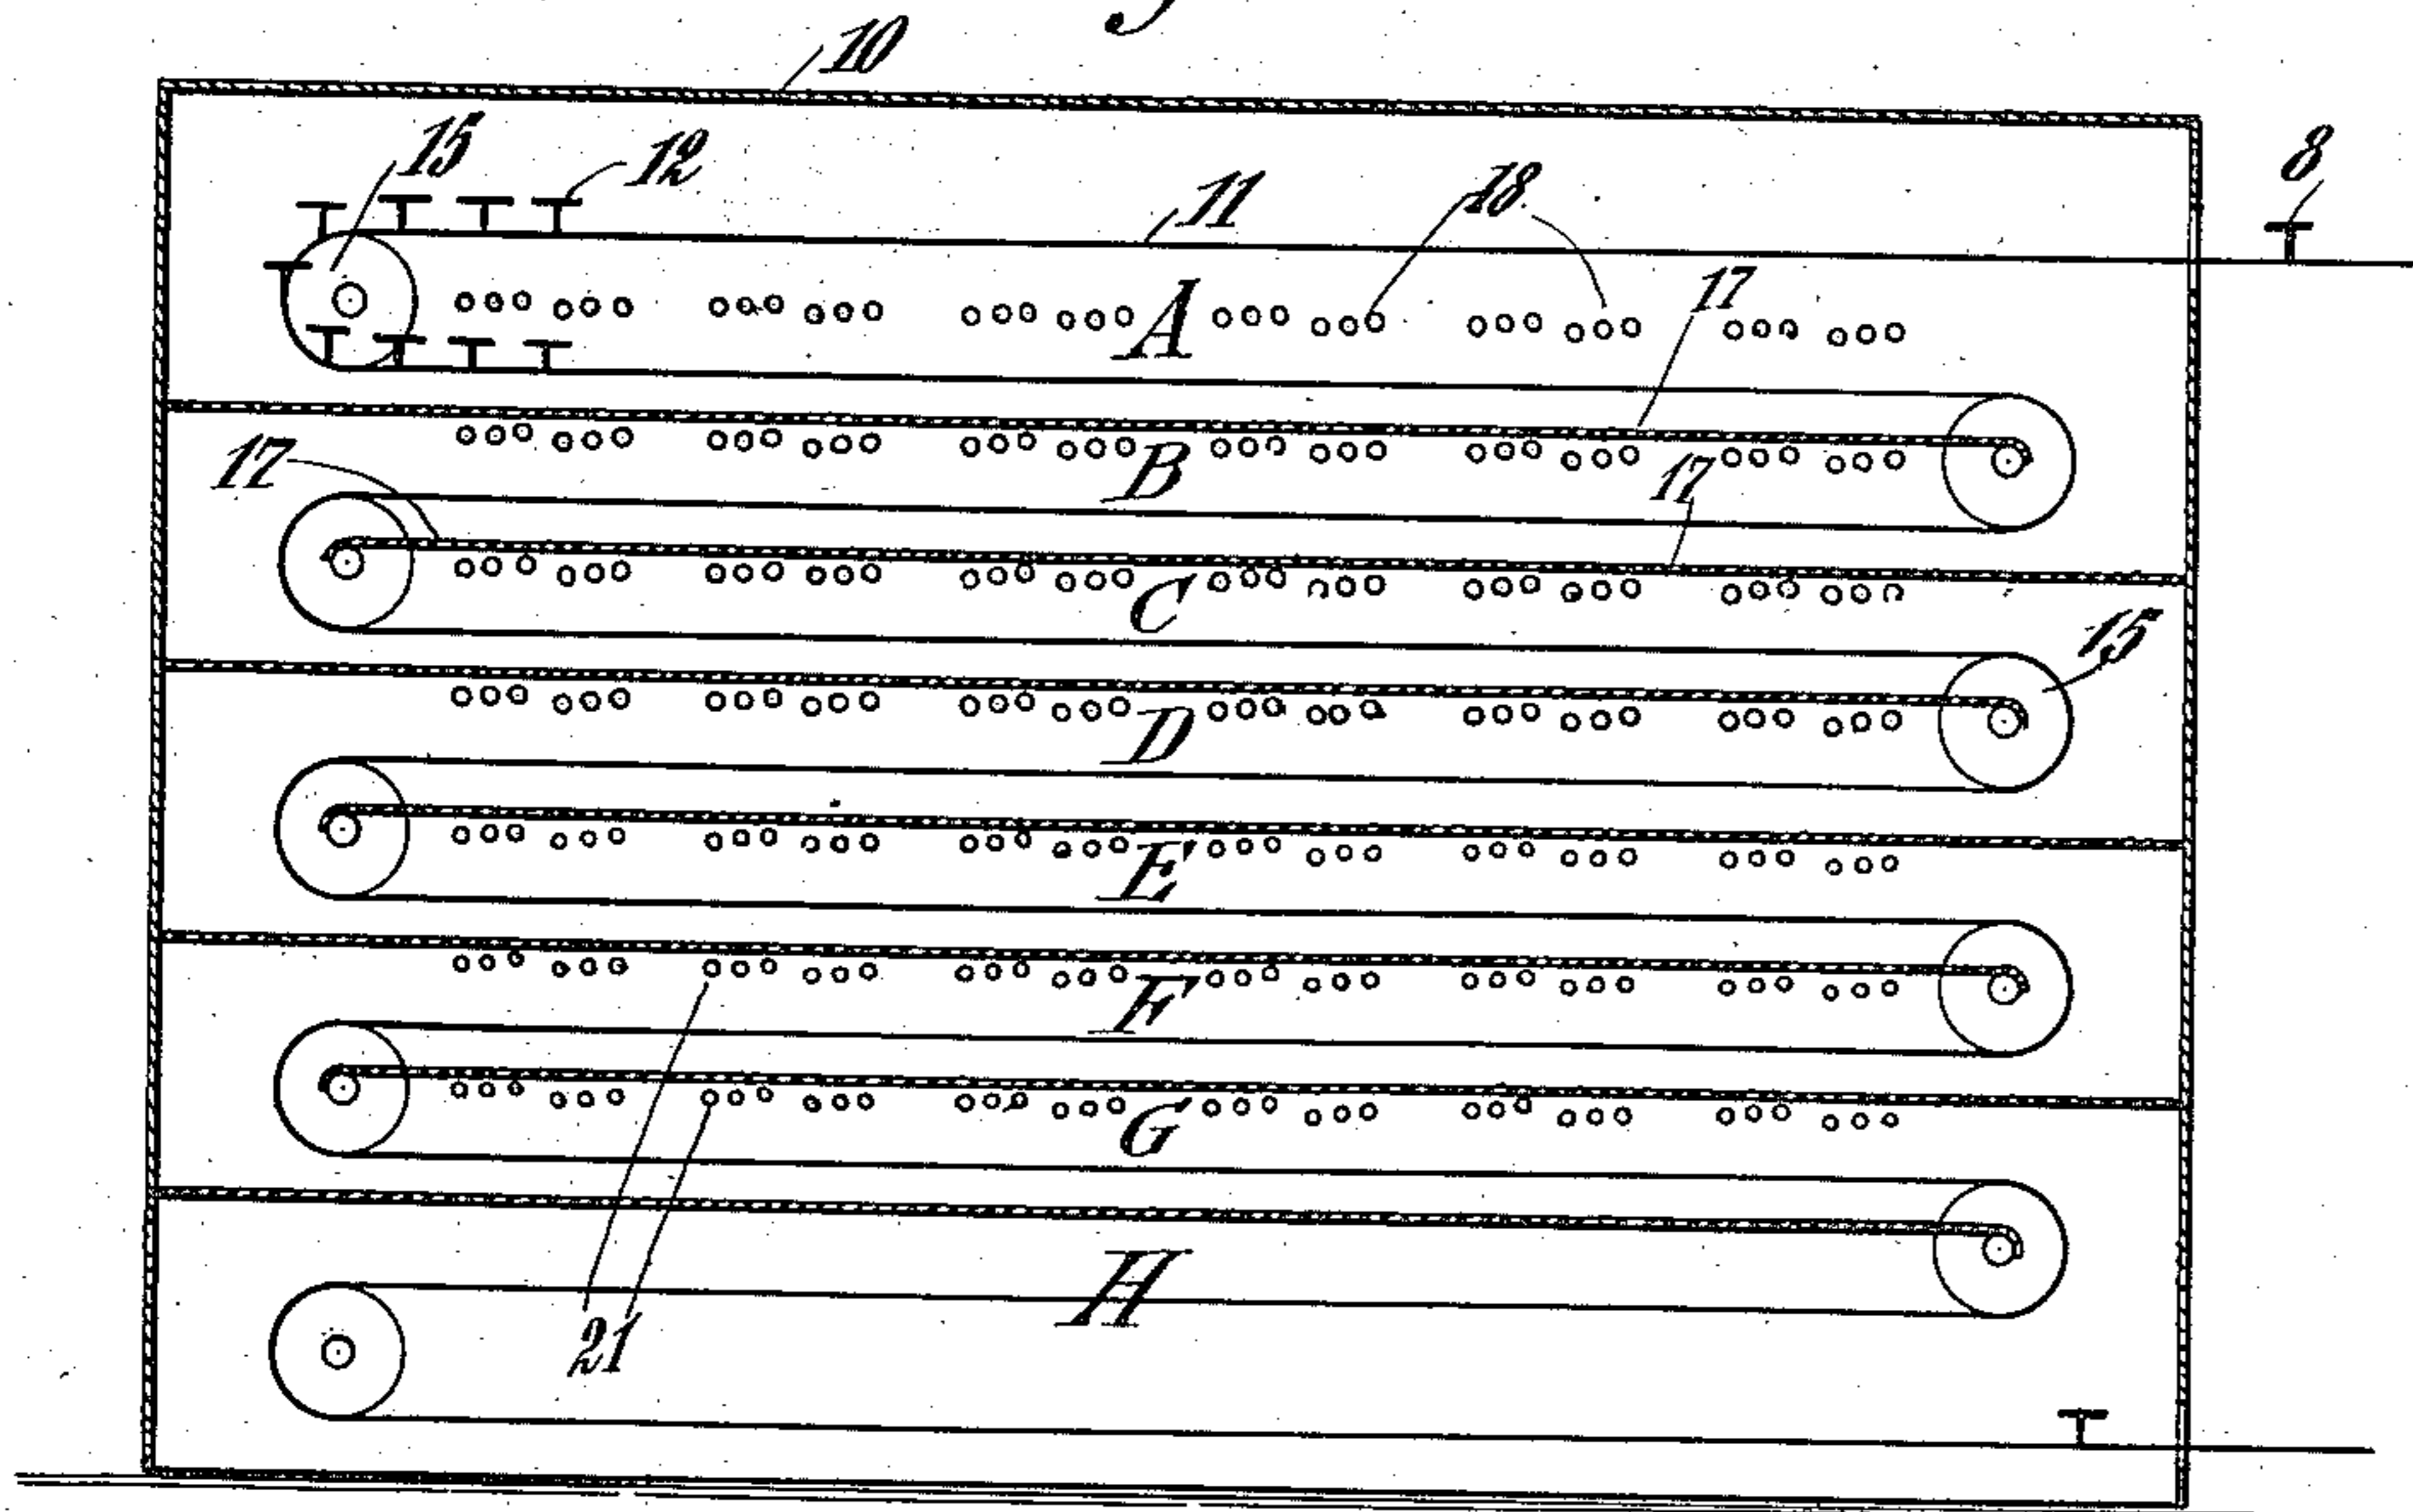 10
15
12
11
18
8
A
17
17
B
17
C
15
D
E
F
G
H
21